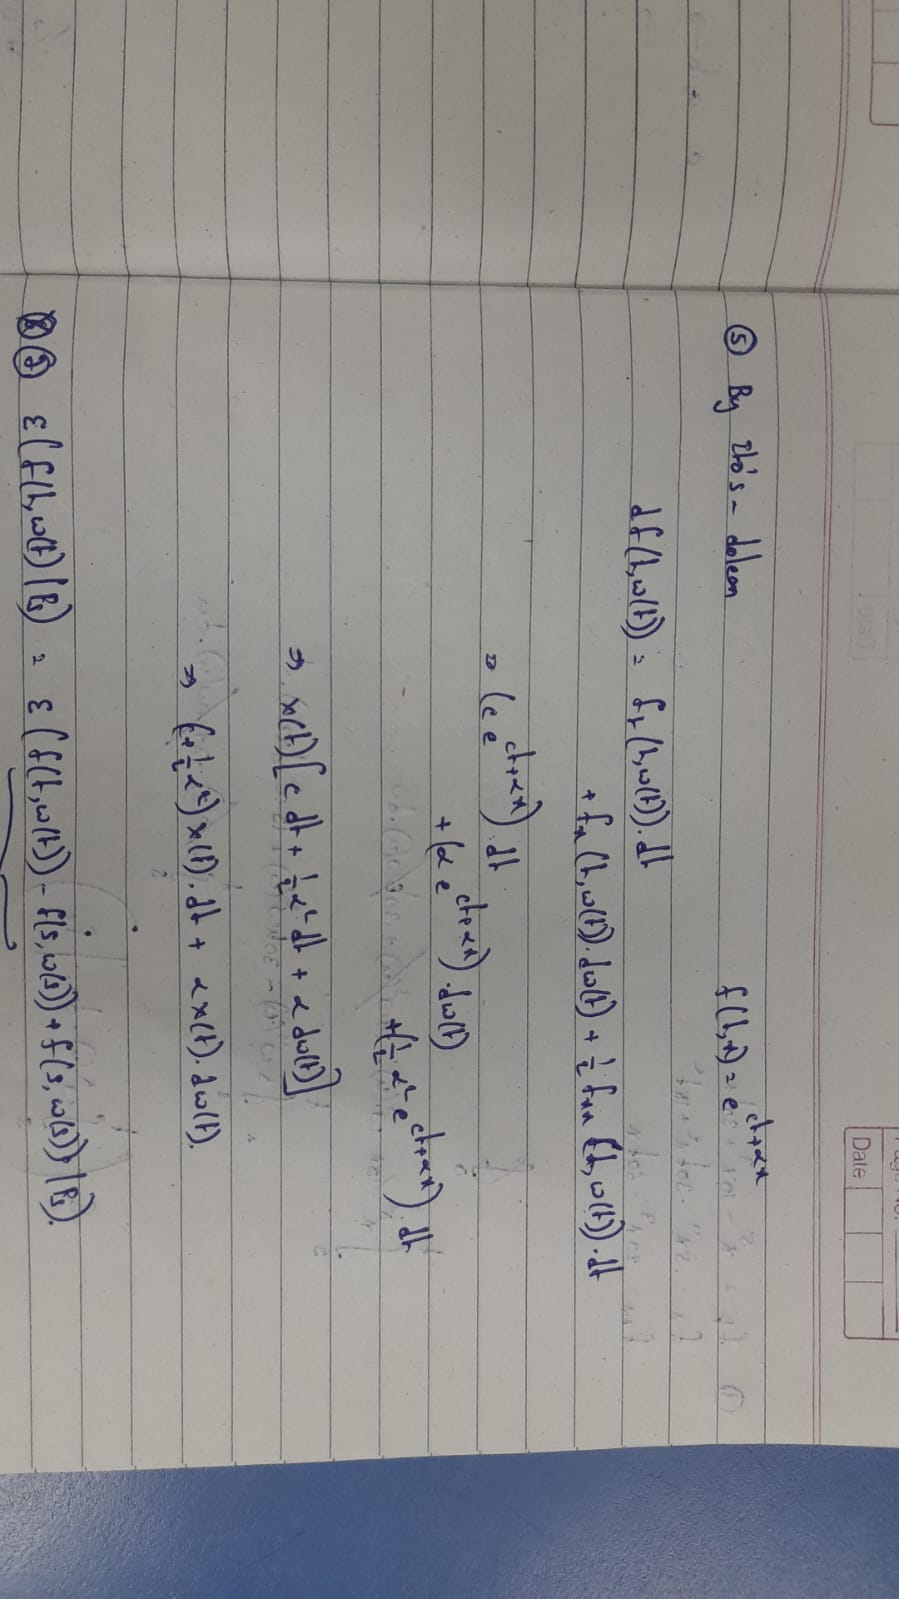 Date
⑤ By Ito's - dolean f(t,x) = e^{ct+αx}
df(t,w(t)) = f_t(t,w(t)).dt
+ f_x(t,w(t)).dw(t) + 1/2 f_xx (t,w(t)).dt
⇒ (c e^{ct+αx}).dt
+ (α e^{ct+αx}).dw(t)
+ (1/2 α² e^{ct+αx}).dt
⇒ x(t)[c dt + 1/2 α² dt + α dw(t)]
⇒ (c+1/2 α²) x(t).dt + α x(t).dw(t).
⑦ ε(f(t,w(t)|Fs) = ε(f(t,w(t)) - f(s,w(s)) + f(s,w(s))|Fs).